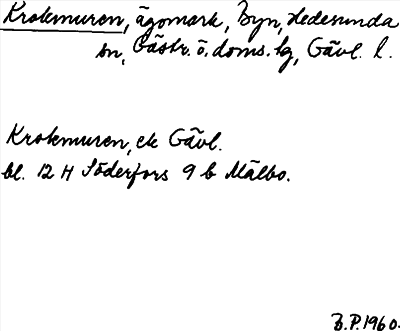 Krokmuren, ägomark, Byn, Hedesunda
sn, Gästr. ö. doms. hg, Gävl. l.
Krokmuren, ek Gävl.
bl. 12 H Söderfors 9 b Mälbo.
B.P. 1960.